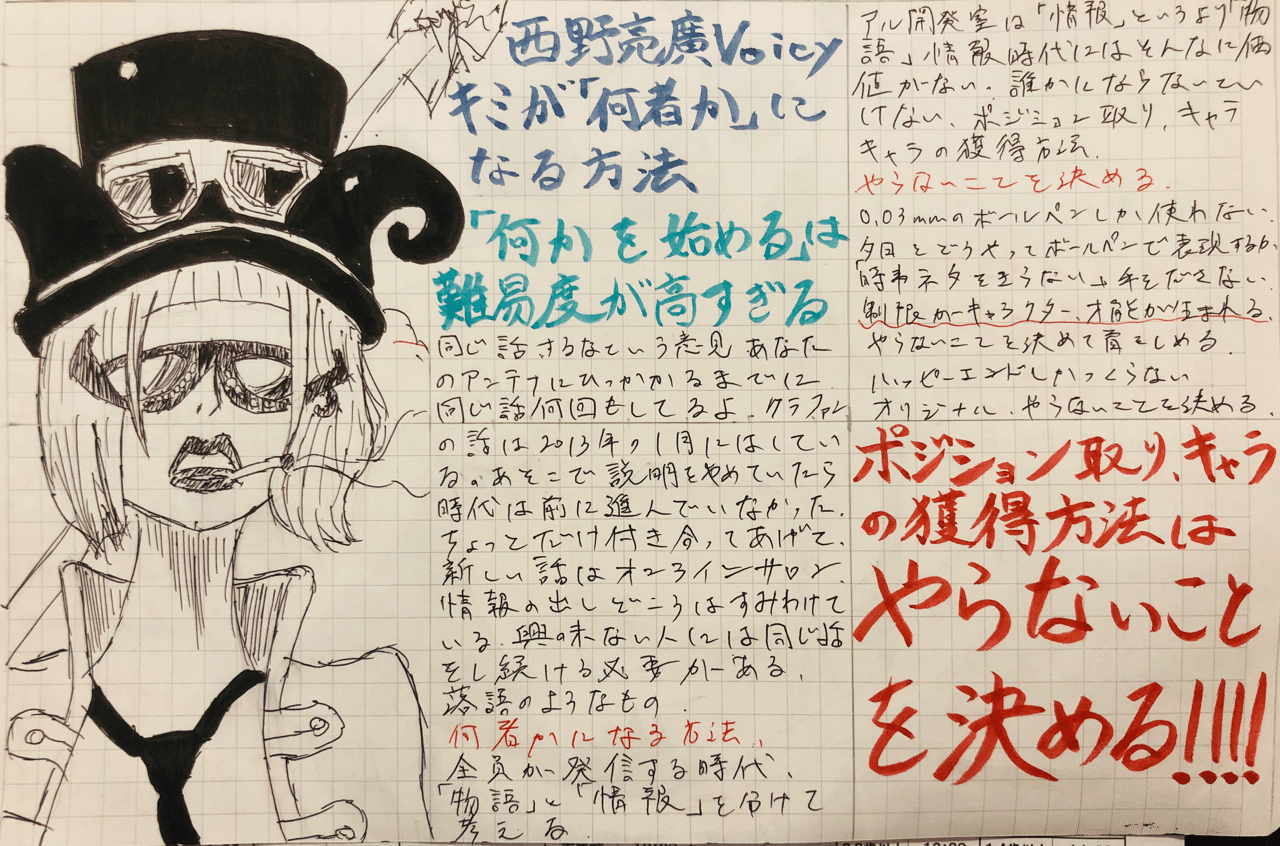 西野亮廣Voicy
キミが「何者か」に
なる方法
「何かを始める」は
難易度が高すぎる
同じ話するなという意見あなた
のアンテナにひっかかるまでに
同じ話何回もしてるよ、クラファン
の話は2013年の1月にはしてい
る。あそこで説明をやめていたら
時代は前に進んでいなかった。
ちょっとだけ付き合ってあげて、
新しい話はオンラインサロン、
情報の出しどころはすみわけて
いる。興味ない人には同じ話
をし続ける必要がある、
落語のようなもの。
何者かになる方法、
全員が発信する時代、
「物語」と「情報」を分けて
考える。
アル開発室は「情報」というより「物
語」情報時代にはそんなに価
値がない。誰かにならないとい
けない、ポジション取り、キャラ
キャラの獲得方法。
やらないことを決める。
0.03mmのボールペンしか使わない。
夕日をどうやってボールペンで表現するか、
「時事ネタをきらない」手をださない。
制限がキャラクター、才能が生まれる。
やらないことを決めて
ハッピーエンドしかつくらない
オリジナル、やらないことを決める。
ポジション取り、キャラ
の獲得方法は
やらないこと
を決める!!!!